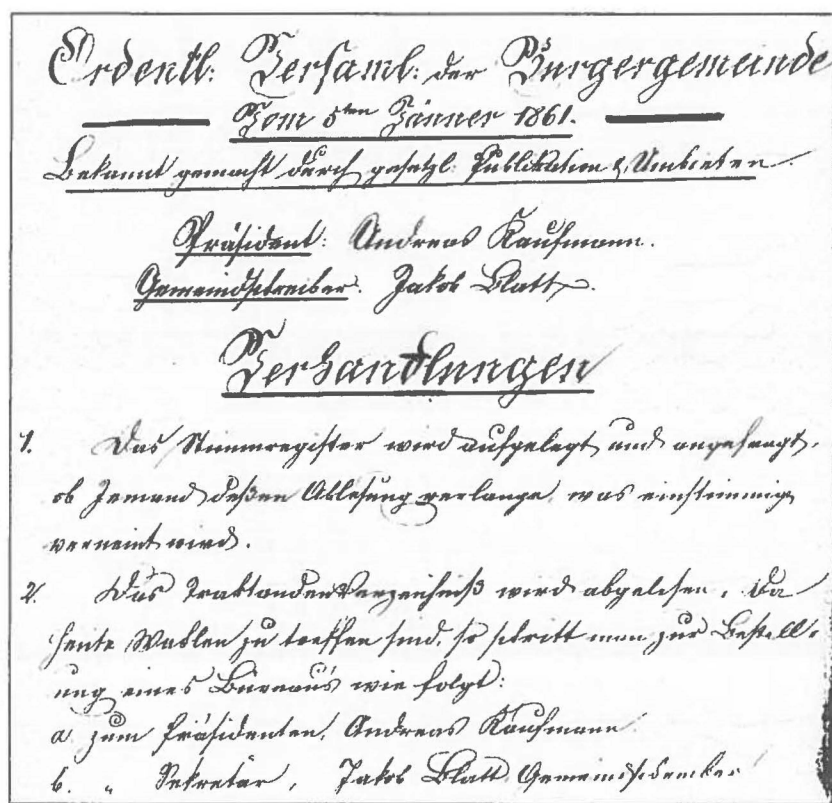 Ordentl: Versaml: der Burgergemeinde
Vom 5ten Jänner 1861.
Bekannt gemacht durch gesetzl: Publikation & Umbieten.
Präsident: Andreas Kaufmann.
Gemeindschreiber. Jakob Blatt.
Verhandlungen
1. Das Stimmregister wird aufgelegt und angefragt,
ob Jemand deßen Ablesung verlange, was einstimmig
verneint wird.
2. Das Traktandenverzeichniß wird abgelesen. Da
heute Wahlen zu treffen sind, so schritt man zur Bestell-
ung eines Büreau's wie folgt:
a. zum Präsidenten, Andreas Kaufmann
b. " Sekretär, Jakob Blatt